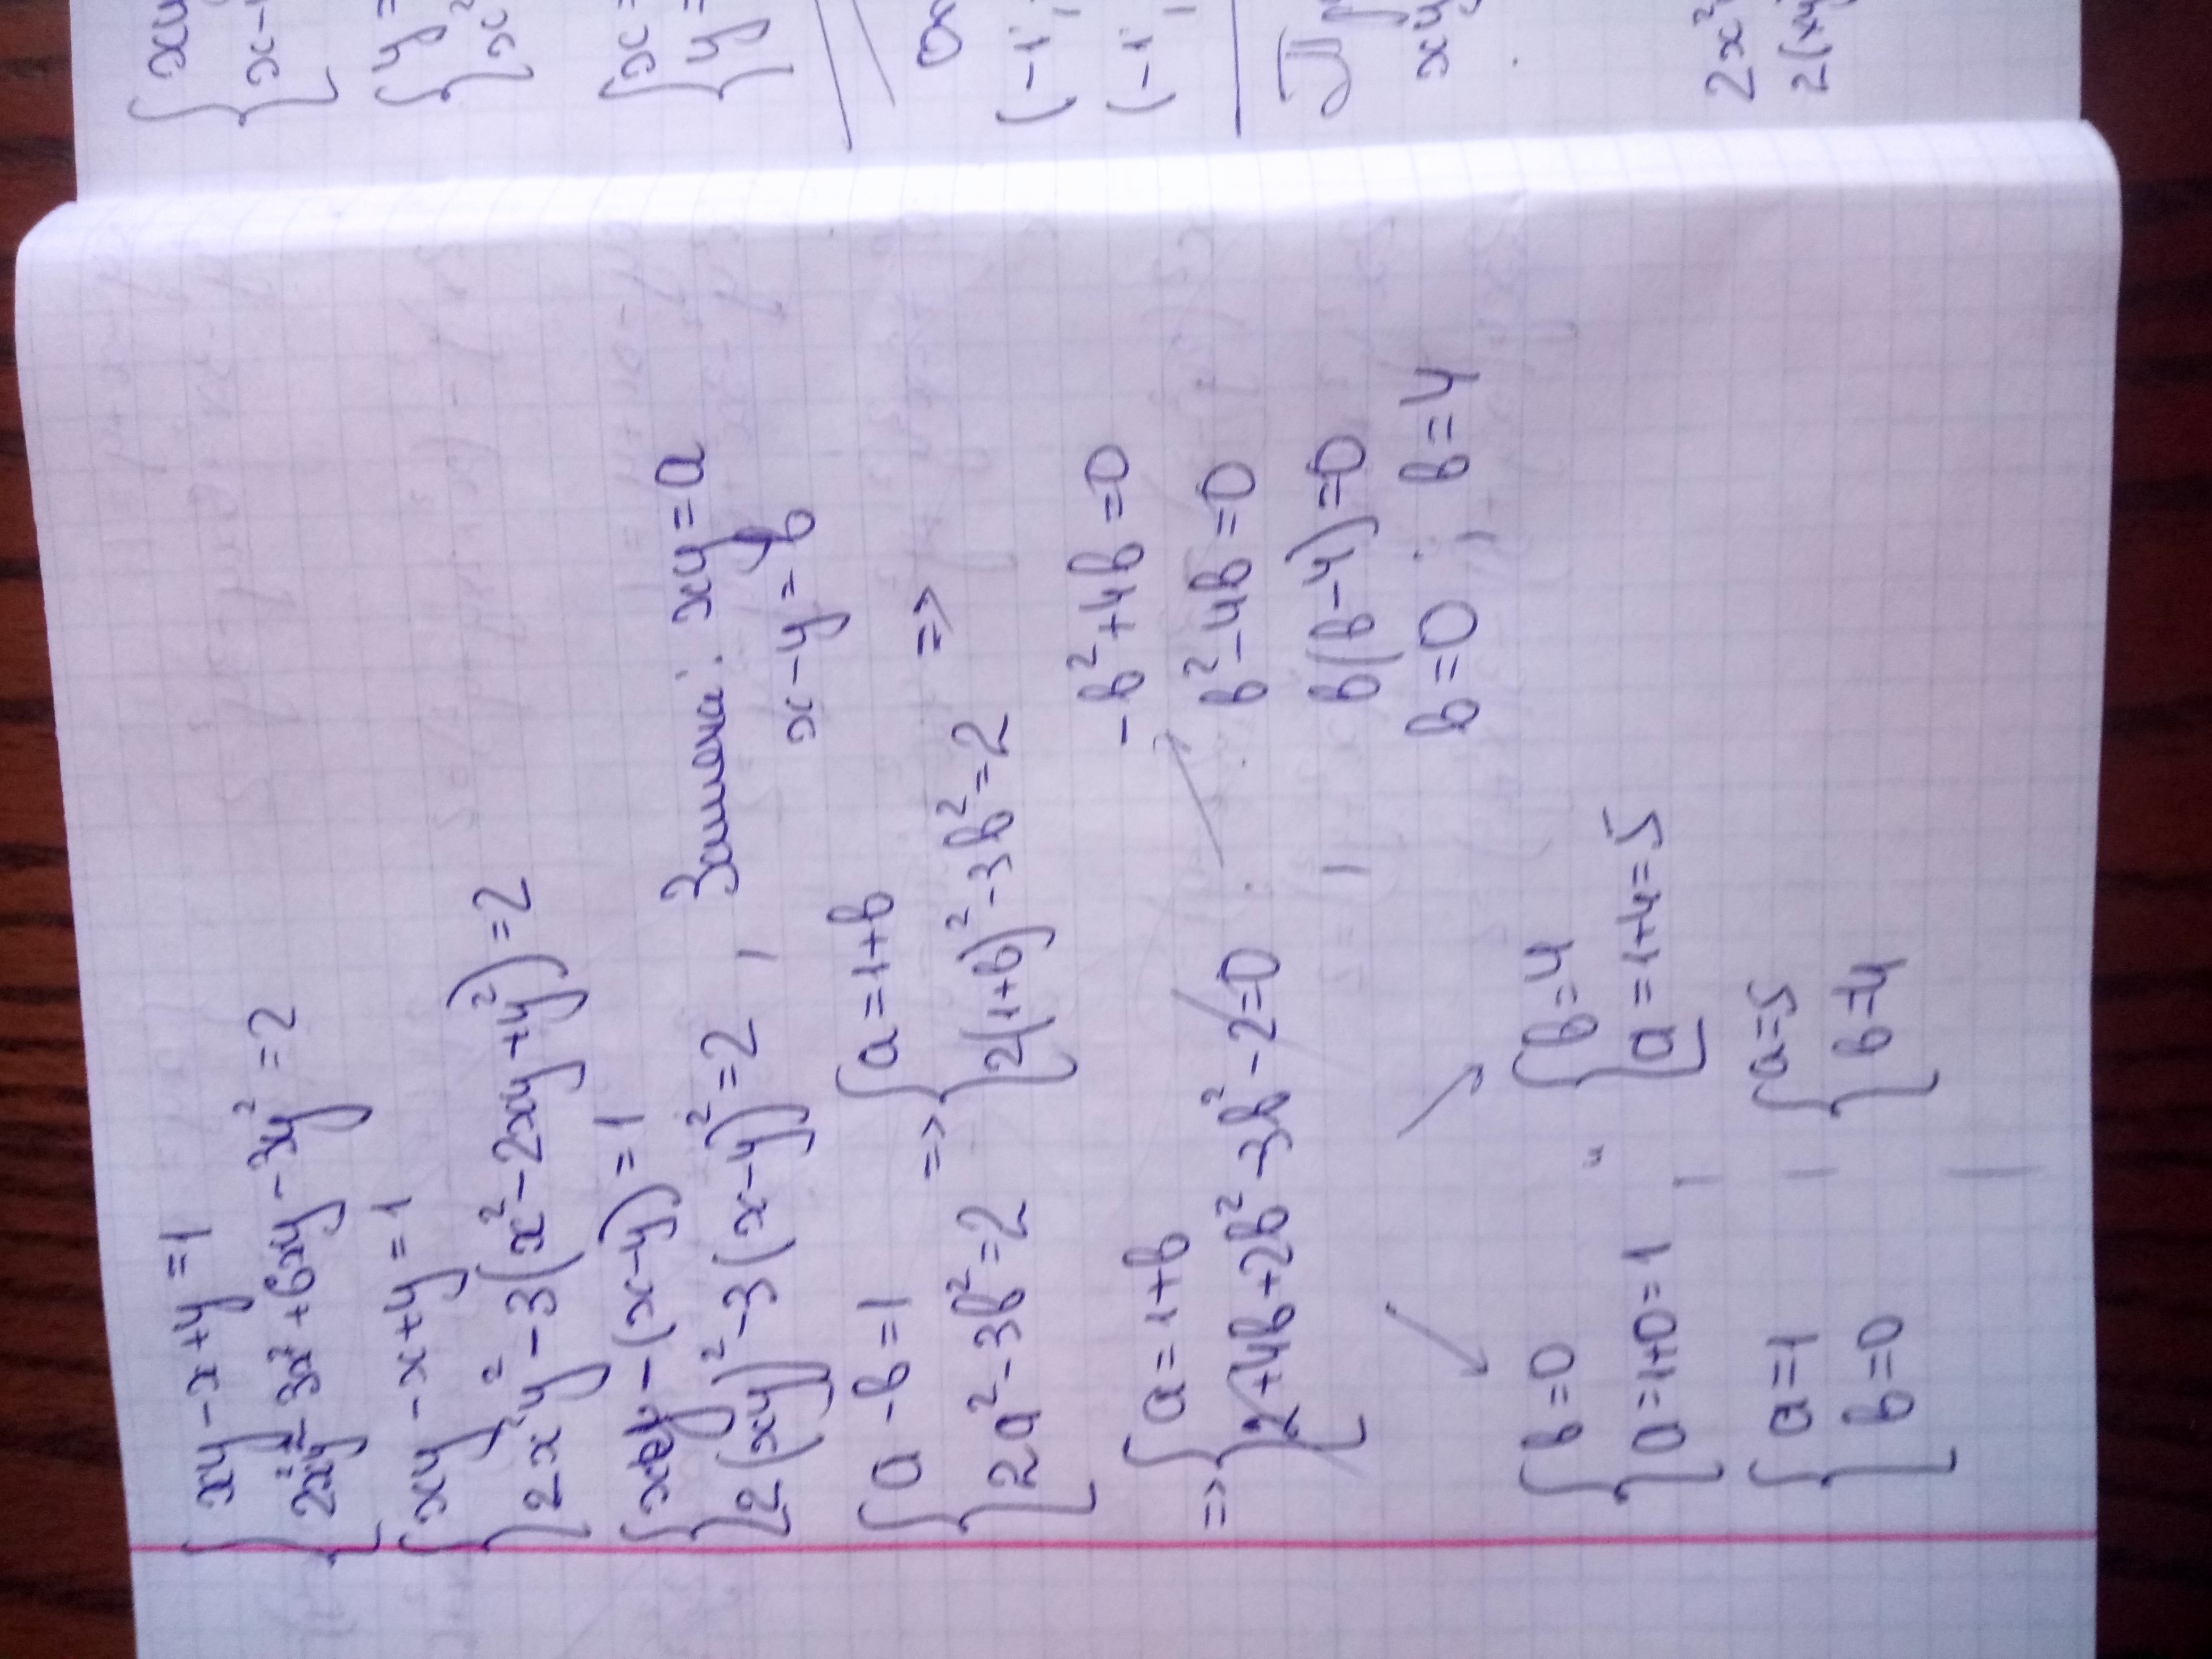 xy - x + y = 1
2x²y² - 3x² + 6xy - 3y² = 2
xy - x + y = 1
2x²y² - 3(x² - 2xy + y²) = 2
xy - (x - y) = 1
2(xy)² - 3(x - y)² = 2, Замена: xy = a
x - y = b
a - b = 1 => a = 1 + b =>
2a² - 3b² = 2 2(1+b)² - 3b² = 2
=> a = 1 + b -b² + 4b = 0
2 + 4b + 2b² - 3b² - 2 = 0 b² - 4b = 0
b(b - 4) = 0
b = 0 ; b = 4
b = 0 b = 4
a = 1 + 0 = 1 a = 1 + 4 = 5
a = 1 a = 5
b = 0 b = 4
xy
x -
y =
x²
x =
y =
(-1;
(-1;
xy
2x²
2(xy